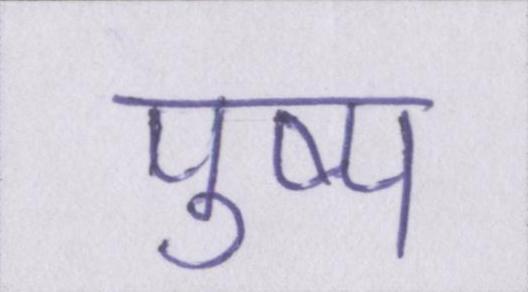 पुष्प